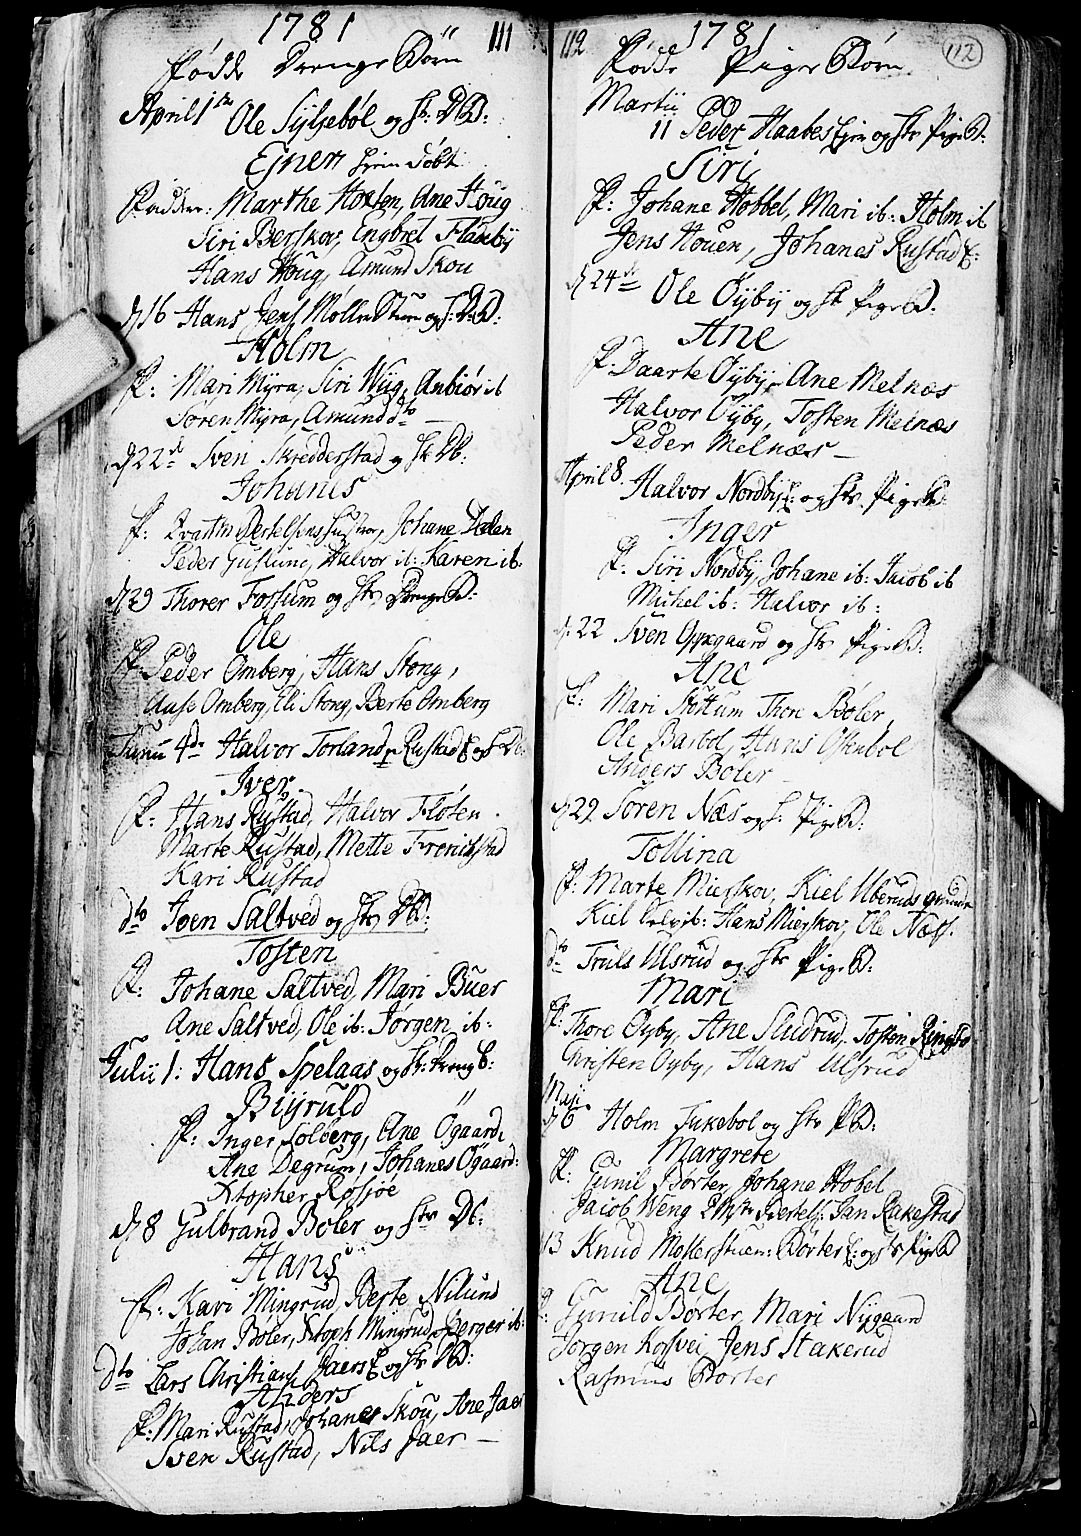 1781 111
Fødde Drenge Børn
April 1ste Ole Syljebøl og H: DB:
Ejner hjem døbt
Fadder: Marthe Horten, Ane Houg
Siri Berskov, Engbret Flateby
Hans Houg, Amund Skou
d 16 Hans Jens Møllerstuen og H: DB:
Holm
F: Mari Myra, Siri Wiig, Anbiør ib
Søren Myra, Amund dto —
d 22de Sven Skredderstad og H: DB:
Johanes
F: Johane Dalen
Peder Guslund, Halvor ib: Karen ib:
d 29 Thorer Fossum og Hs Drenge B:
Ole
F: Peder Omberg, Hans Stong,
Aase Omberg, Eli Stong, Berte Omberg
Junii 4de Halvor Torland p Rustad E og H DB:
Iver
F: Hans Rustad, Halvor Fløten.
Marte Rustad, Mette
Kari Rustad
dto Joen Saltved og Hs DB:
Tosten
F: Johane Saltved, Mari Buer
Ane Saltved, Ole ib: Jørgen ib:
Julii 1: Hans Spelaas og H: Dreng B:
Biyruld
F: Inger Solberg, Ane Ögaard,
Ane Degrum, Johanes Ögaard:
Xtopher Rosjøe
d 8 Gulbrand Bøler og Hs DB:
Hans
F: Kari Mingrud, Berte Nilund
Johan Bøler, Xtoph Mingrud, Børger ib:
dto Lars Christians Jaers E og Hs DB:
Anders
F: Mari Rustad, Johanes Skou, Ane Jaer
Sven Rustad, Nils Jaer —
112 1781 112
Fødde Pige Børn
Martii
11 Peder Haabes Eje og Hs Pige B:
Siri
F: Johane Hobbel, Mari ib: Holm ib
Jens Houen, Johanes Rustad E:
d 24de Ole Öyby og H Pige B:
Ane
F: Daarte Öyby, Ane Melnæs
Halvor Öyby, Tosten Melnæs
Peder Melnæs —
April 8. Halvor Nordby E: og Hs Pige B
Inger
F: Siri Nordby, Johane ib: Jacob ib
Michel ib: Halvor ib:
d. 22 Sven Oppegaard og Hs Pige B:
Ane
F: Mari Thore Bøler,
Ole Barbøl, Hans Ostenbøl
Anders Bøler
d 29 Søren Næs og H: Pige B:
Tollina
F: Marte Mierskov, Kiel
Kiel Hans Mierskov, Ole Næss.
dto Truls Ulsrud og Hs Pige B:
Mari
F: Thore Öyby, Ane Sludrud, Tosten
Christen Oyby, Hans Ulsrud
Maji
d 6 Holm Tukebøl og Hs PB:
Margrete
F: Gunil Børter, Johane Hobel
Jacob Weng Jan Rakestad
13 Knud Møllerstuen: Børter E: og Hs Pige B
Ane
F: Gunild Børter, Mari Nygaard
Jorgen Kossvei, Jens Stakerud
Rasmus Børter